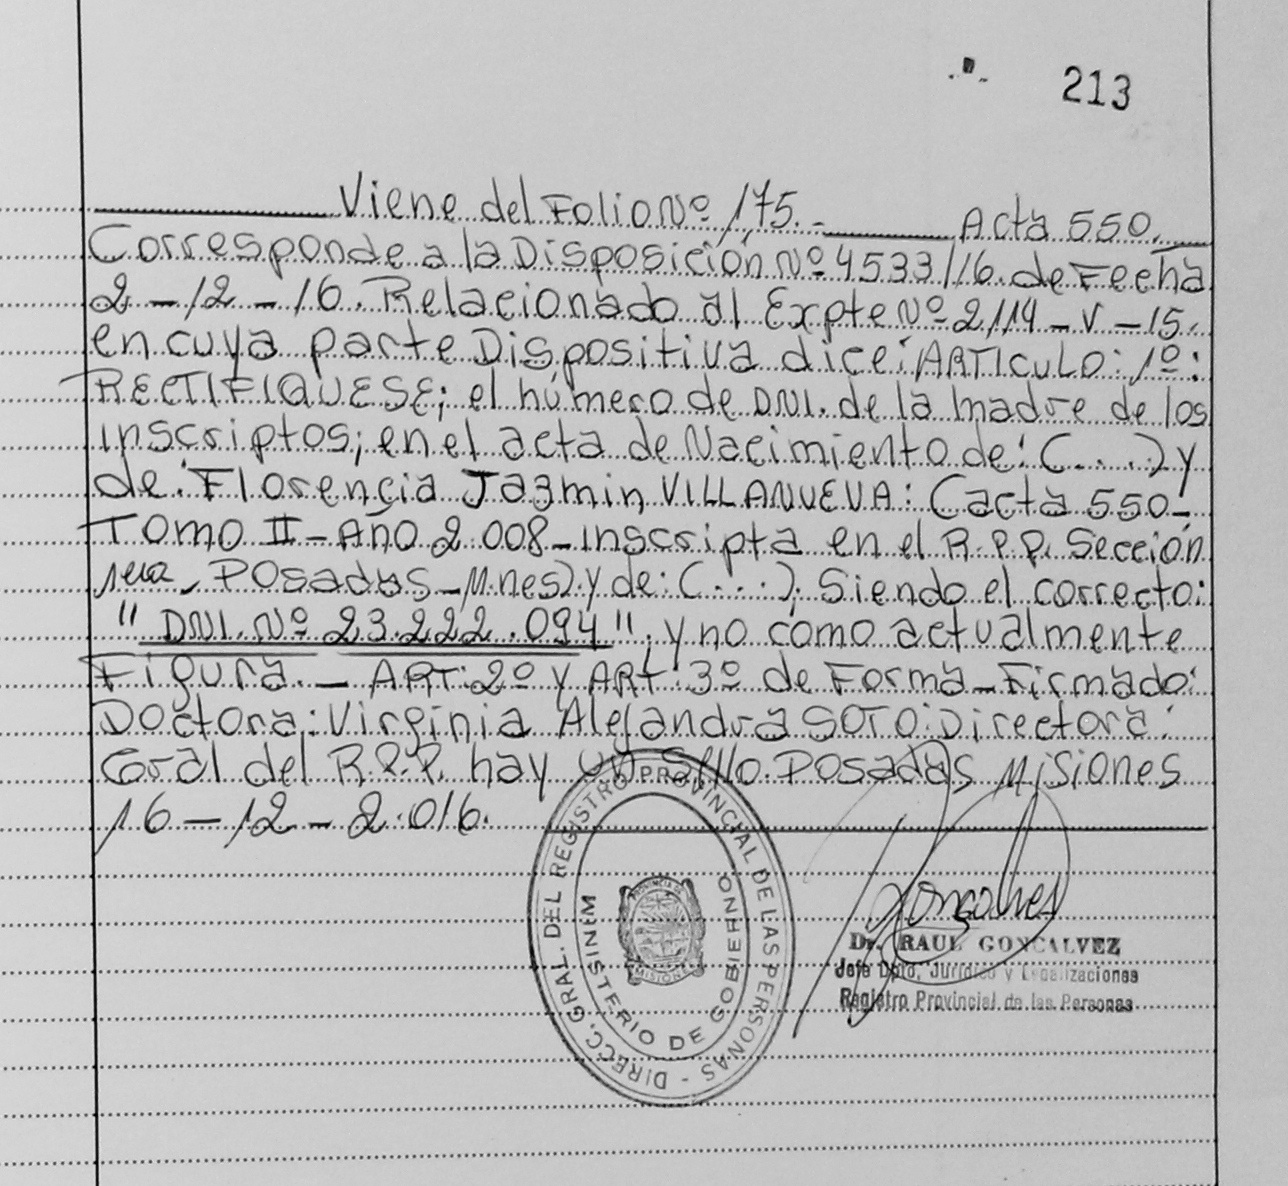 213
Viene del Folio Nº 175.- Acta 550.
Corresponde a la Disposición Nº 4533/16. de Fecha
2-12-16. Relacionado al Expte Nº 2114-V-15.
en cuya parte Dispositiva dice: ARTICULO: 1º:
RECTIFIQUESE; el número de DNI. de la madre de los
inscriptos; en el acta de Nacimiento de: (....) y
de: Florencia Jazmin VILLANUEVA: (acta 550-
Tomo II-Año 2.008-inscripta en el R.P.P. Sección
1era, Posadas-Mnes) y de: (....), Siendo el correcto:
"DNI. Nº 23.222.094", y no como actualmente
Figura.- ART: 2º y ART: 3º de Forma-Firmado:
Doctora: Virginia Alejandra SOTO: Directora:
Gral del R.P.P. hay un Sello. Posadas Misiones
16-12-2.016.
DIRECC. GRAL. DEL REGISTRO PROVINCIAL DE LAS PERSONAS -
MINISTERIO DE GOBIERNO
PROVINCIA DE
MISIONES
Goncalves
Dr. RAUL GONCALVEZ
Jefe Dpto. Jurídico y Legalizaciones
Registro Provincial de las Personas